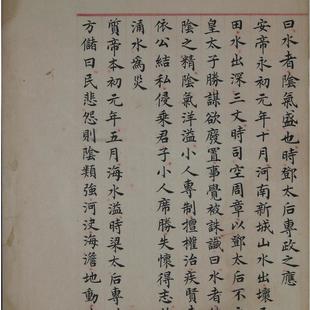 曰水者陰氣盛也時鄧太后專政之應
安帝永初元年十月河南新城山水出壞
田水出深三丈時司空周章以鄧太后不
皇太子勝謀欲廢置事覺被誅識曰水者
陰之精陰氣洋溢小人專制擅權治疾賢
依公結私侵乘君子小人席勝失懷得志
涌水為災
質帝本初元年五月海水溢時梁太后專
方儲曰民悲怨則陰類強河決海澹地動